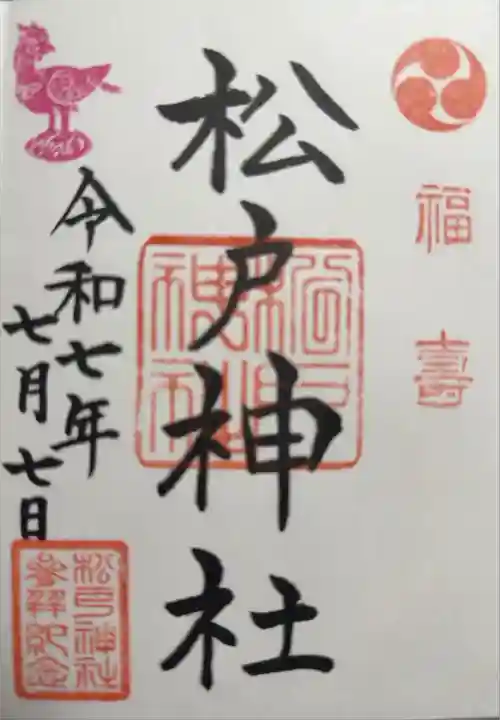 福壽
松戸神社
令和七年
七月七日
松戸神社
参拝記念